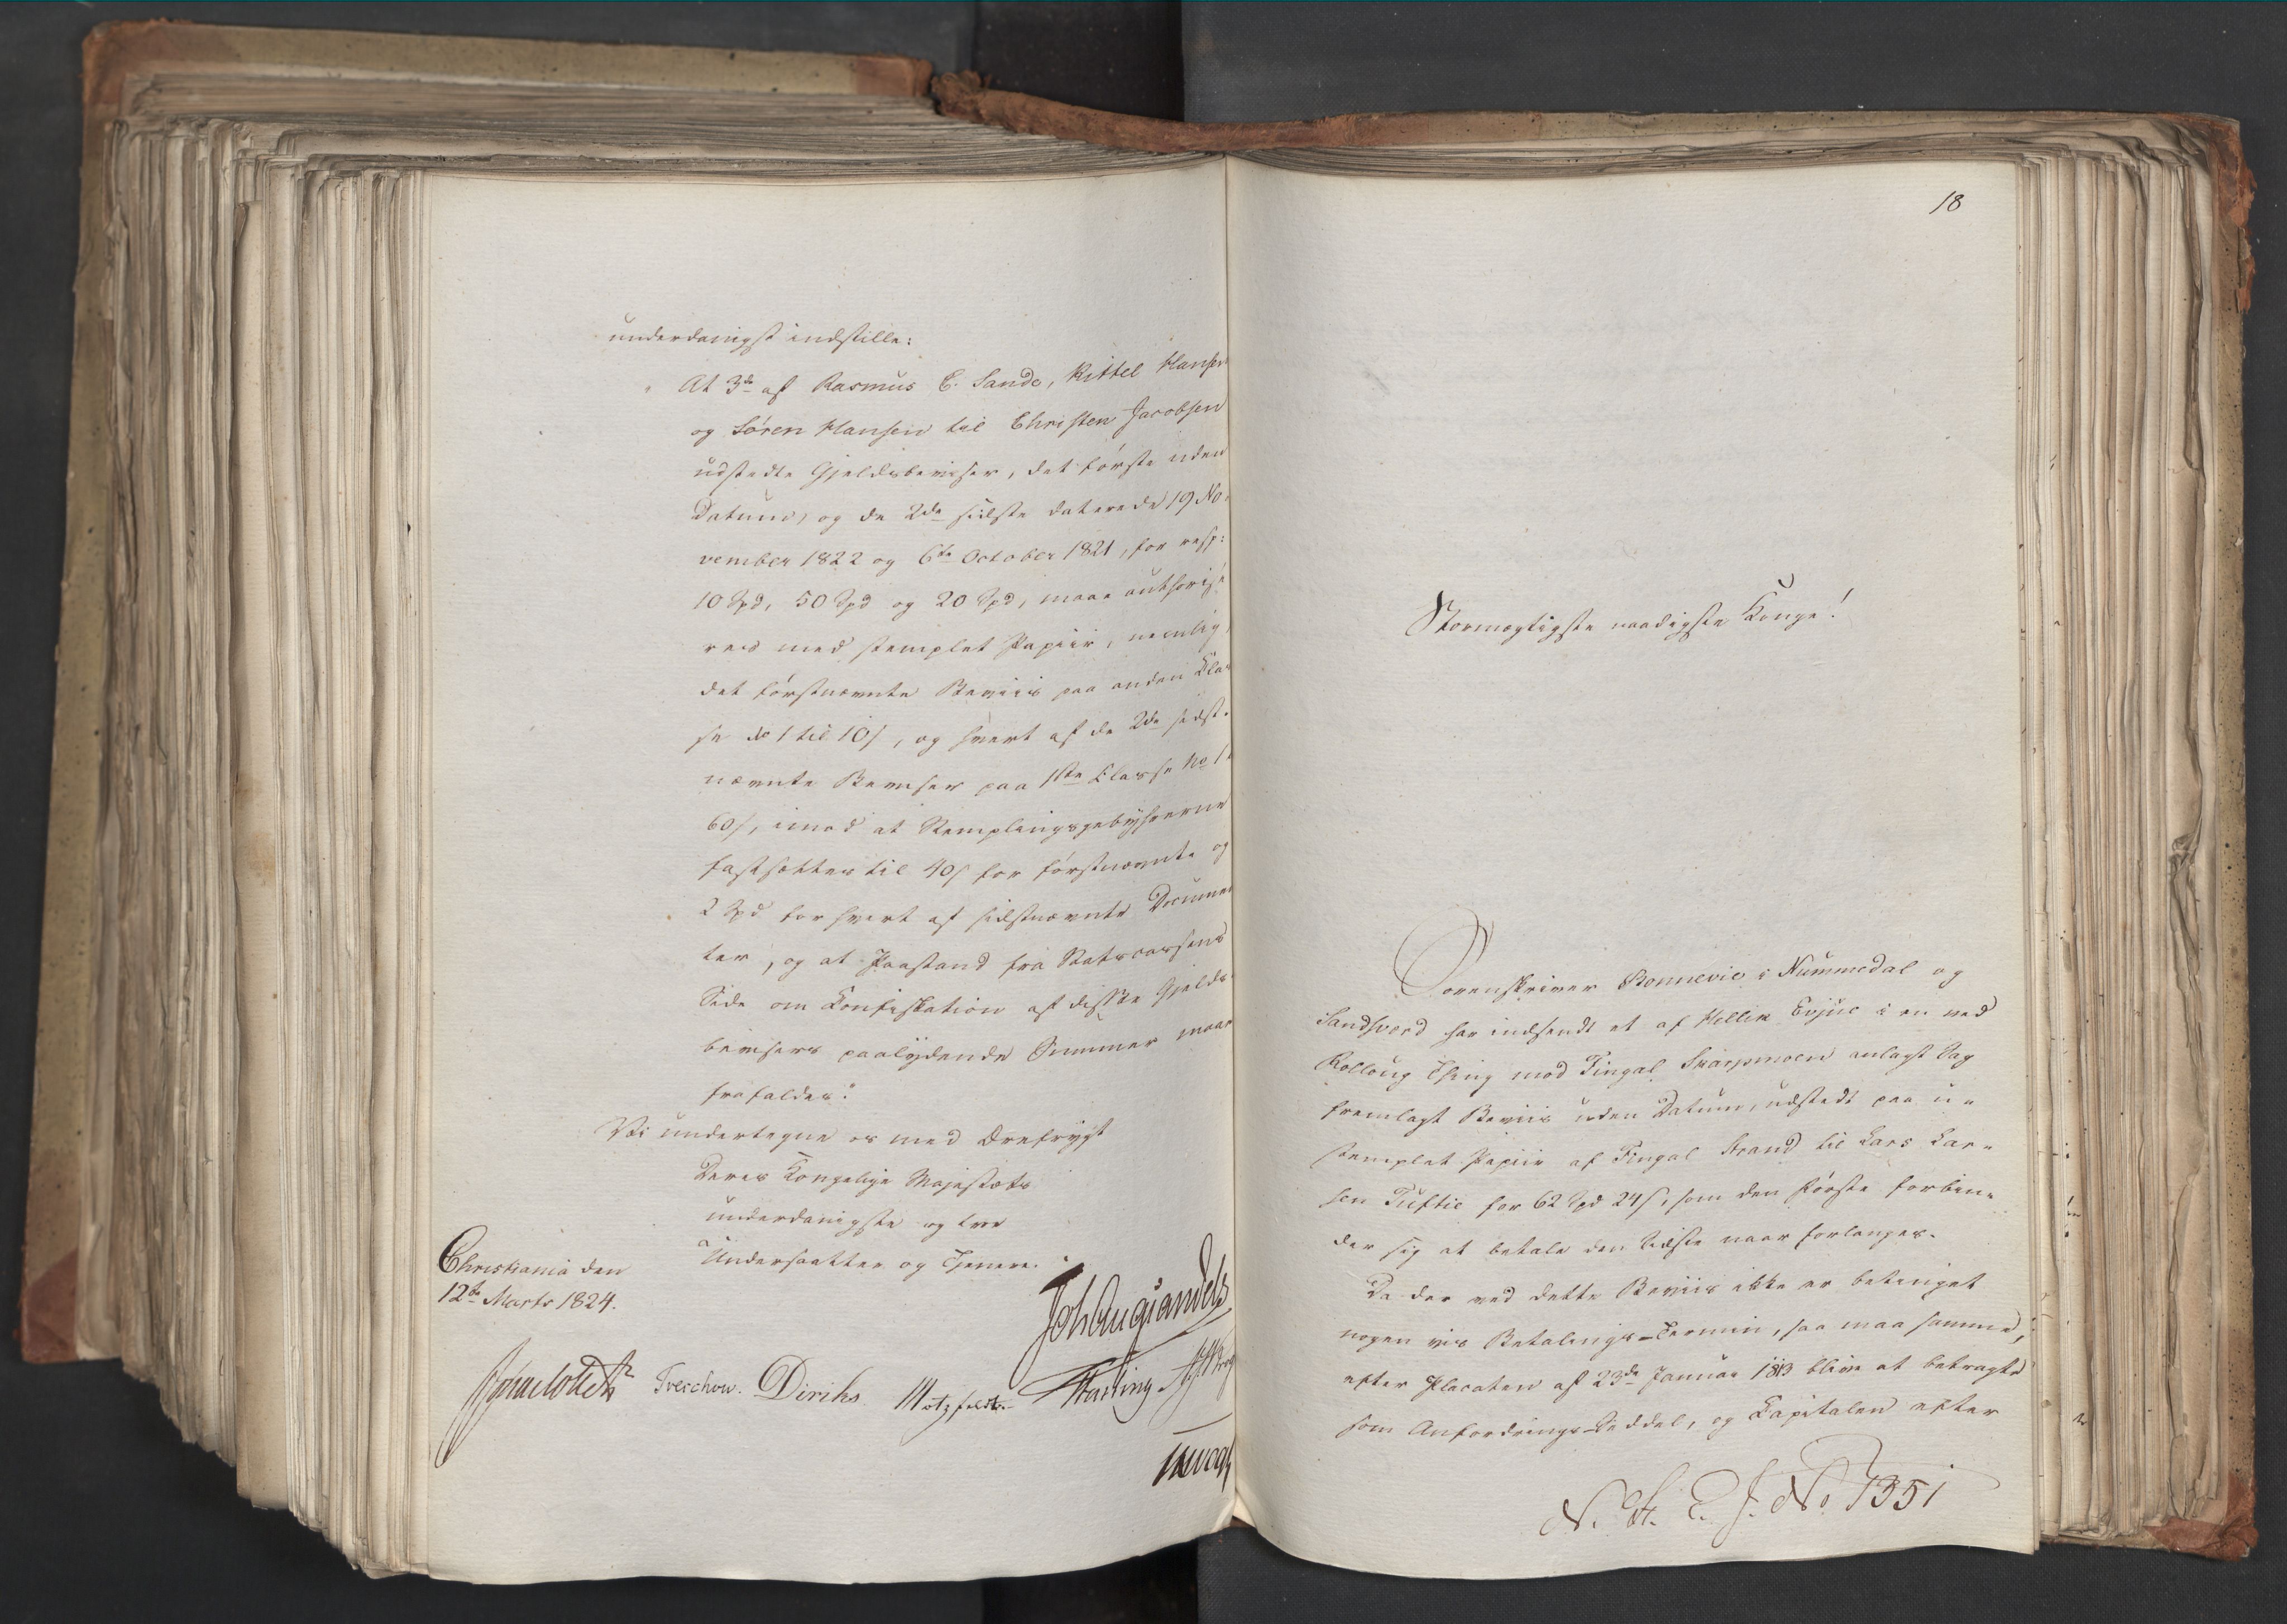 underdanigst indstille:
At 3de af Rasmus C. Sande, Kittel Hansen
og Sören Hansen til Christen Jacobsen
udstedte Gjeldsbeviser, det förste uden
Datum, og de 2de sidste daterede 19 No-
vember 1822 og 6te October 1821, for resp:
10 Spd, 50 Spd og 20 Spd, maae authorise-
res med stemplet Papiir, nemlig
det förstnævnte Beviis paa anden Clas-
se No 1 til 10 s, og hvert af de 2de sidst-
nævnte Beviser paa 1ste Classe No 1
60 s, imod at Stemplingsgebyhrerne
fastsættes til 40 s for förstnævnte og
2 Spd for hvert af sidstnævnte Documen-
ter, og at Paastand fra Statscassens
Side om Confiskation af disse Gjelds-
bevisers paalydende Summer maae
frafaldes.
Vi undertegne os med Ærefrygt
Deres Kongelige Majestæts
underdanigste og troe
Undersaatter og Tjenere.
Christiania den
12te Marts 1824.
Joh Aug Sandels
Sommerhielm Treschow. Diriks Motzfeldt. Fasting Krog
18
Stormægtigste naadigste Konge!
Sorenskriver Bonnevie i Nummedal og
Sandsverd har indsendt et af Hellik Evjue i en ved
Rolloug Thing mod Fingal Skarpmoen anlagt Sag
fremlagt Beviis uden Datum, udstedt paa u-
stemplet Papiir af Fingal Strand til Lars Lar-
sen Tuftie for 62 Spd 24 s, som den Förste forbin-
der sig at betale den Sidste naar forlanges.
Da der ved dette Beviis ikke er betinget
nogen vis Betalings-Termin, saa maa samme,
efter Placaten af 23de Januar 1813 blive at betragte
som Anfordrings-Seddel, og Capitalen efter
N. St. E. J. No 1351